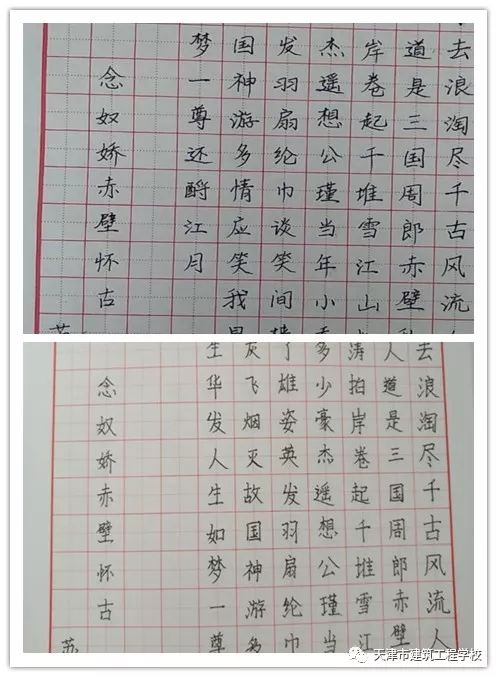 去浪淘尽千古风流
道是三国周郎赤壁
岸卷起千堆雪江山
杰遥想公瑾当年小
发羽扇纶巾谈笑间
国神游多情应笑我
梦一尊还酹江月
念奴娇赤壁怀古
苏
去浪淘尽千古风流人
人道是三国周郎赤壁
涛拍岸卷起千堆雪江
多少豪杰遥想公瑾当
了雄姿英发羽扇纶巾
灰飞烟灭故国神游多
生华发人生如梦一尊
念奴娇赤壁怀古
苏
天津市建筑工程学校